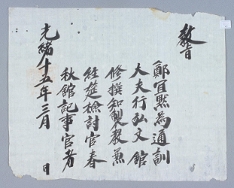 敎旨
鄭宜默為通訓
大夫行弘文館
修撰知製敎兼
經筵檢討官春
秋館記事官者
光緒十五年三月 日